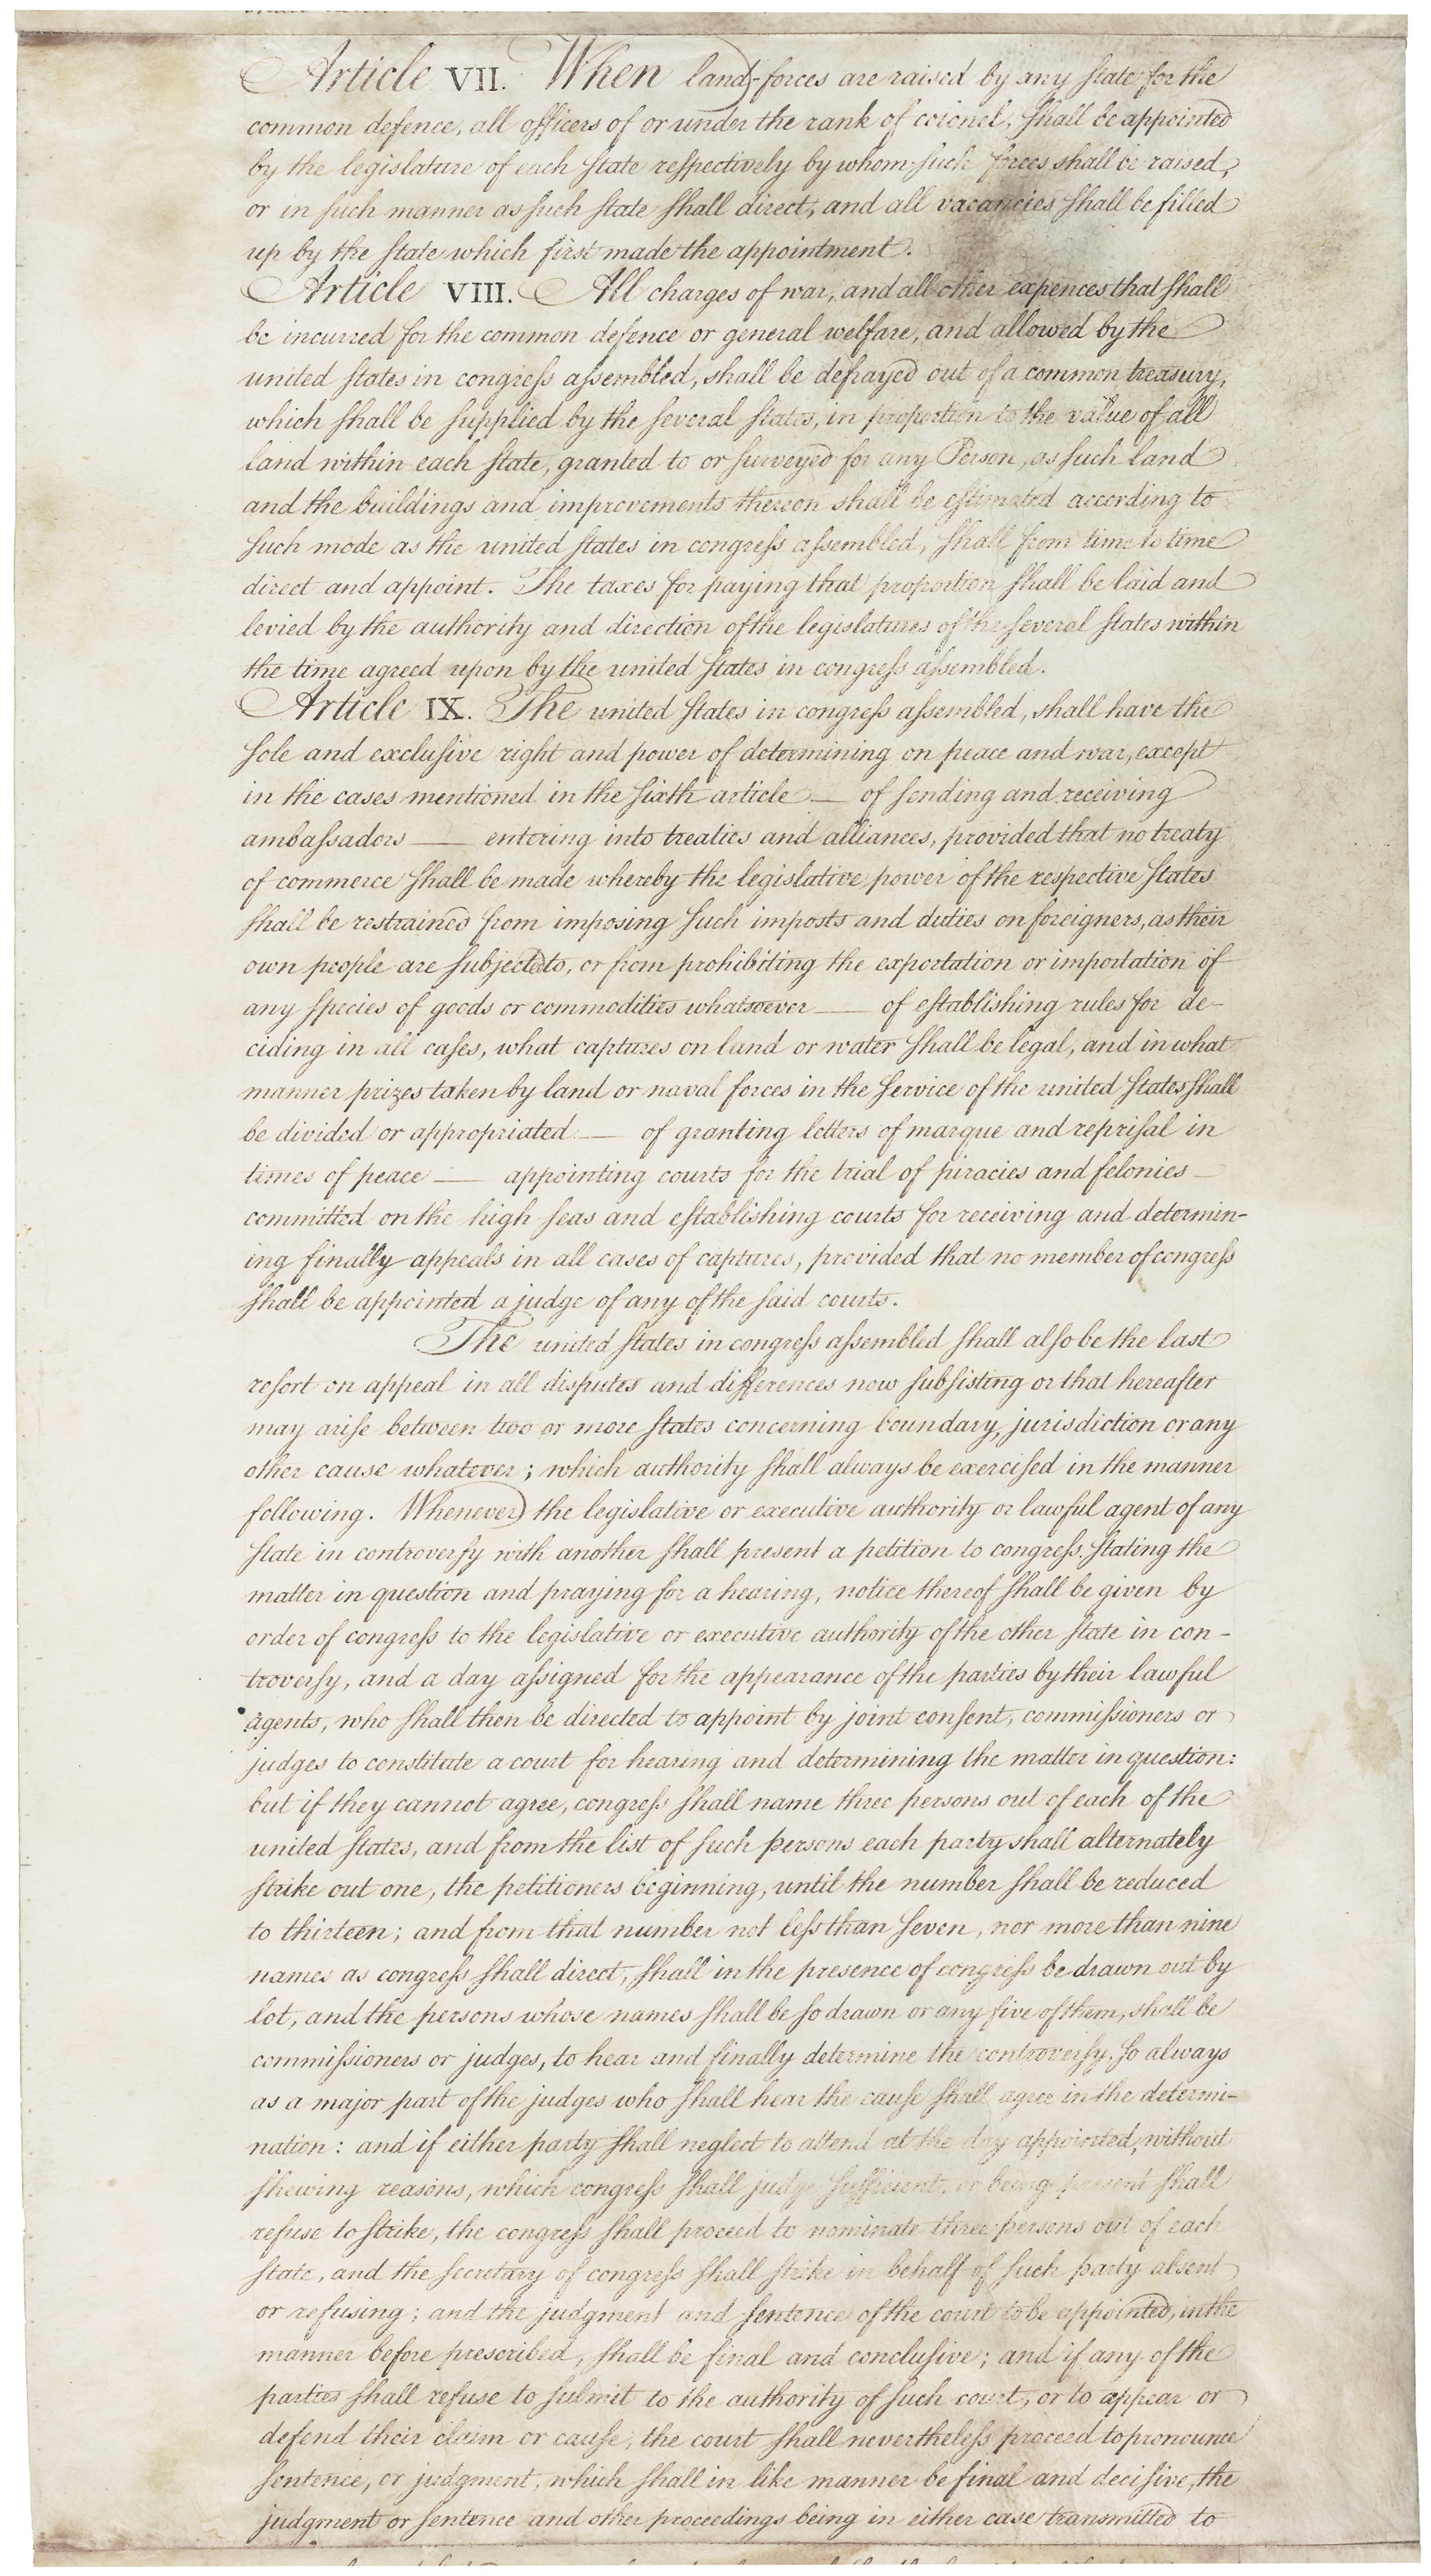 Article VII. When land-forces are raised by any state for the
common defence, all officers of or under the rank of colonel, shall be appointed
by the legislature of each state respectively by whom such forces shall be raised,
or in such manner as such state shall direct, and all vacancies shall be filled
up by the state which first made the appointment.
Article VIII. All charges of war, and all other expences that shall
be incurred for the common defence or general welfare, and allowed by the
united states in congress assembled, shall be defrayed out of a common treasury,
which shall be supplied by the several states, in proportion to the value of all
land within each state, granted to or surveyed for any Person, as such land
and the buildings and improvements thereon shall be estimated according to
such mode as the united states in congress assembled, shall from time to time
direct and appoint. The taxes for paying that proportion shall be laid and
levied by the authority and direction of the legislatures of the several states within
the time agreed upon by the united states in congress assembled.
Article IX. The united states in congress assembled, shall have the
sole and exclusive right and power of determining on peace and war, except
in the cases mentioned in the sixth article — of sending and receiving
ambassadors — entering into treaties and alliances, provided that no treaty
of commerce shall be made whereby the legislative power of the respective states
shall be restrained from imposing such imposts and duties on foreigners, as their
own people are subjected to, or from prohibiting the exportation or importation of
any species of goods or commodities whatsoever — of establishing rules for de-
ciding in all cases, what captures on land or water shall be legal, and in what
manner prizes taken by land or naval forces in the service of the united states shall
be divided or appropriated — of granting letters of marque and reprisal in
times of peace — appointing courts for the trial of piracies and felonies
committed on the high seas and establishing courts for receiving and determin-
ing finally appeals in all cases of captures, provided that no member of congress
shall be appointed a judge of any of the said courts.
The united states in congress assembled shall also be the last
resort on appeal in all disputes and differences now subsisting or that hereafter
may arise between two or more states concerning boundary, jurisdiction or any
other cause whatever; which authority shall always be exercised in the manner
following. Whenever the legislative or executive authority or lawful agent of any
state in controversy with another shall present a petition to congress, stating the
matter in question and praying for a hearing, notice thereof shall be given by
order of congress to the legislative or executive authority of the other state in con-
troversy, and a day assigned for the appearance of the parties by their lawful
agents, who shall then be directed to appoint by joint consent, commissioners or
judges to constitute a court for hearing and determining the matter in question:
but if they cannot agree, congress shall name three persons out of each of the
united states, and from the list of such persons each party shall alternately
strike out one, the petitioners beginning, until the number shall be reduced
to thirteen; and from that number not less than seven, nor more than nine
names as congress shall direct, shall in the presence of congress be drawn out by
lot, and the persons whose names shall be so drawn or any five of them, shall be
commissioners or judges, to hear and finally determine the controversy, so always
as a major part of the judges who shall hear the cause shall agree in the determi-
nation: and if either party shall neglect to attend at the day appointed, without
shewing reasons, which congress shall judge sufficient, or being present shall
refuse to strike, the congress shall proceed to nominate three persons out of each
state, and the secretary of congress shall strike in behalf of such party absent
or refusing; and the judgment and sentence of the court to be appointed, in the
manner before prescribed, shall be final and conclusive; and if any of the
parties shall refuse to submit to the authority of such court, or to appear or
defend their claim or cause, the court shall nevertheless proceed to pronounce
sentence, or judgment, which shall in like manner be final and decisive, the
judgment or sentence and other proceedings being in either case transmitted to